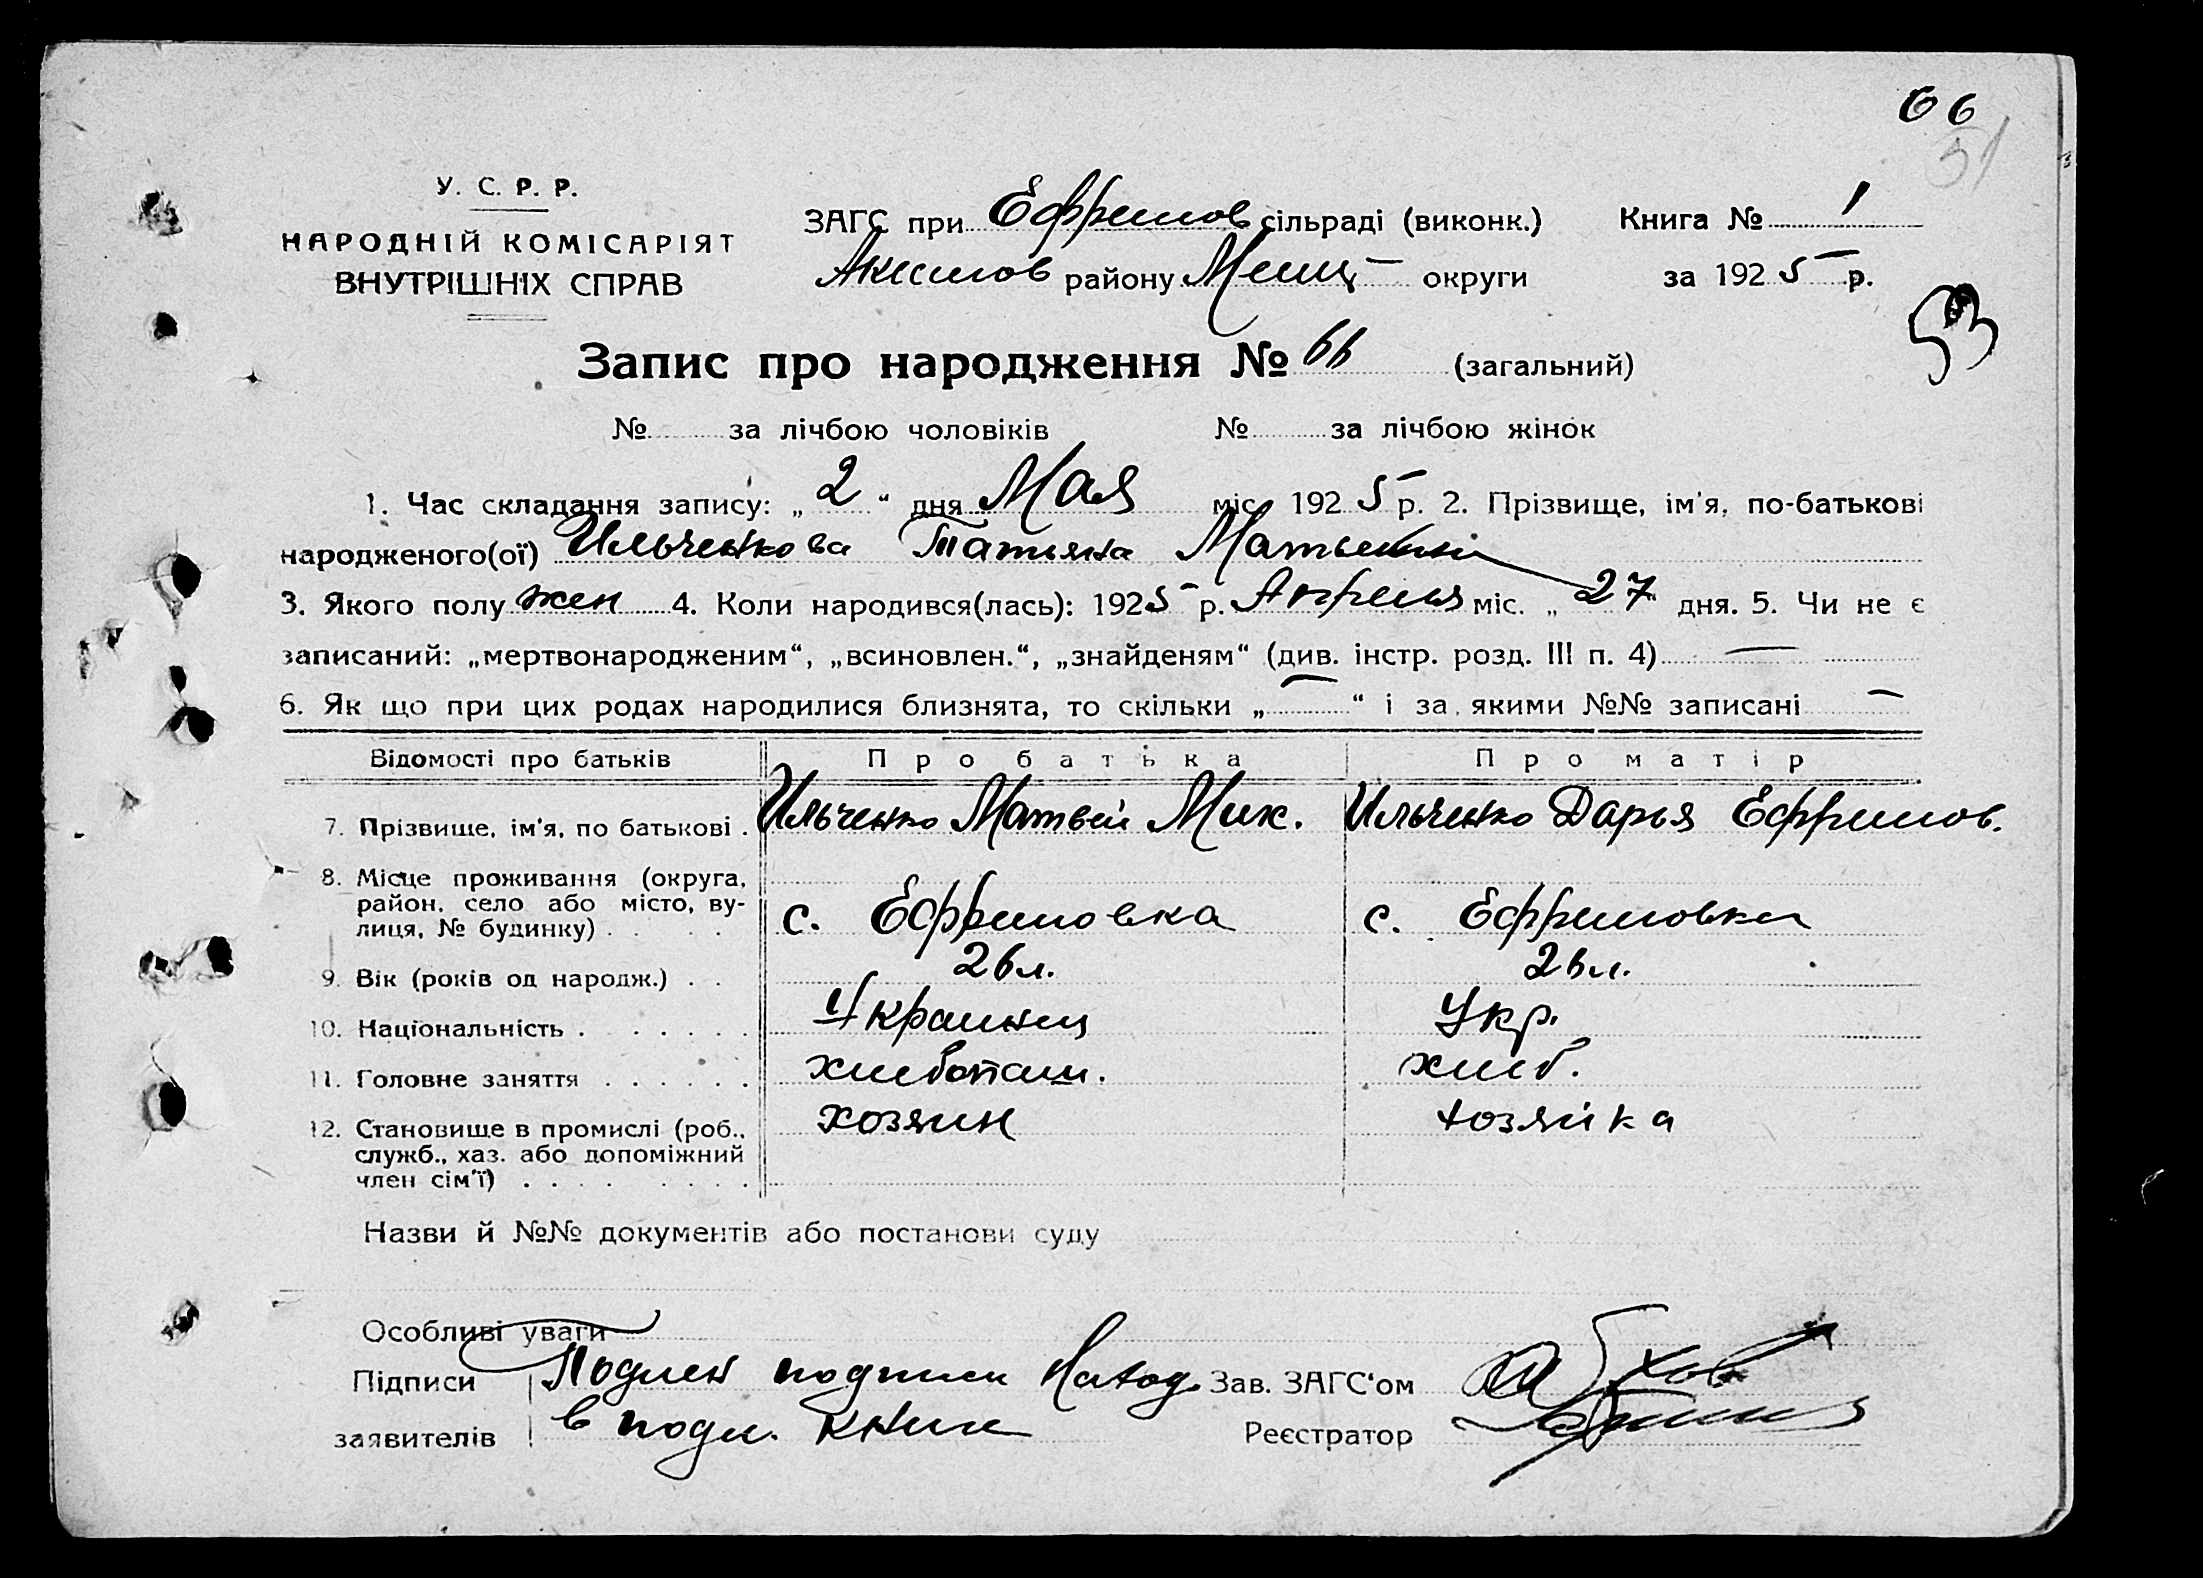 66
51
У. С. Р. Р.
НАРОДНІЙ КОМІСАРІЯТ
ВНУТРІШНІХ СПРАВ
ЗАГС при Ефремов сільраді (виконк.) Книга № 1
Акимов району Мелит округи за 1925 р.
53
Запис про народження № 66 (загальний)
№ за лічбою чоловіків № за лічбою жінок
1. Час складання запису: „ 2 “ дня Мая міс. 1925 р. 2. Прізвище, ім'я, по-батькові
народженого(ої) Ильченкова Татьяна
3. Якого полу жен 4. Коли народився(лась): 1925 р. Апреля міс. „ 27 “ дня. 5. Чи не є
записаний: „мертвонародженим“, „всиновлен.“, „знайденям“ (див. інстр. розд. III п. 4) —
6. Як що при цих родах народилися близнята, то скільки „ — “ і за якими №№ записані —
Відомості про батьків Про батька Про матір
7. Прізвище, ім'я, по батькові . Ильченко Матвей Мих. Ильченко Дарья Ефремов.
8. Місце проживання (округа,
район, село або місто, ву-
лиця, № будинку) . . . . с. Ефремовка с. Ефремовка
9. Вік (років од народж.) . . 26 л. 26 л.
10. Національність . . . . . . Украинец Укр.
11. Головне заняття . . . . . . хлебопаш. хлеб.
12. Становище в промислі (роб., хозяин хозяйка
служб., хаз. або допоміжний
член сім'ї) . . . . . . . .
Назви й №№ документів або постанови суду
Особливі уваги
Підписи Подлен подписи Наход. Зав. ЗАГС'ом
заявителів в подл. книге Реєстратор